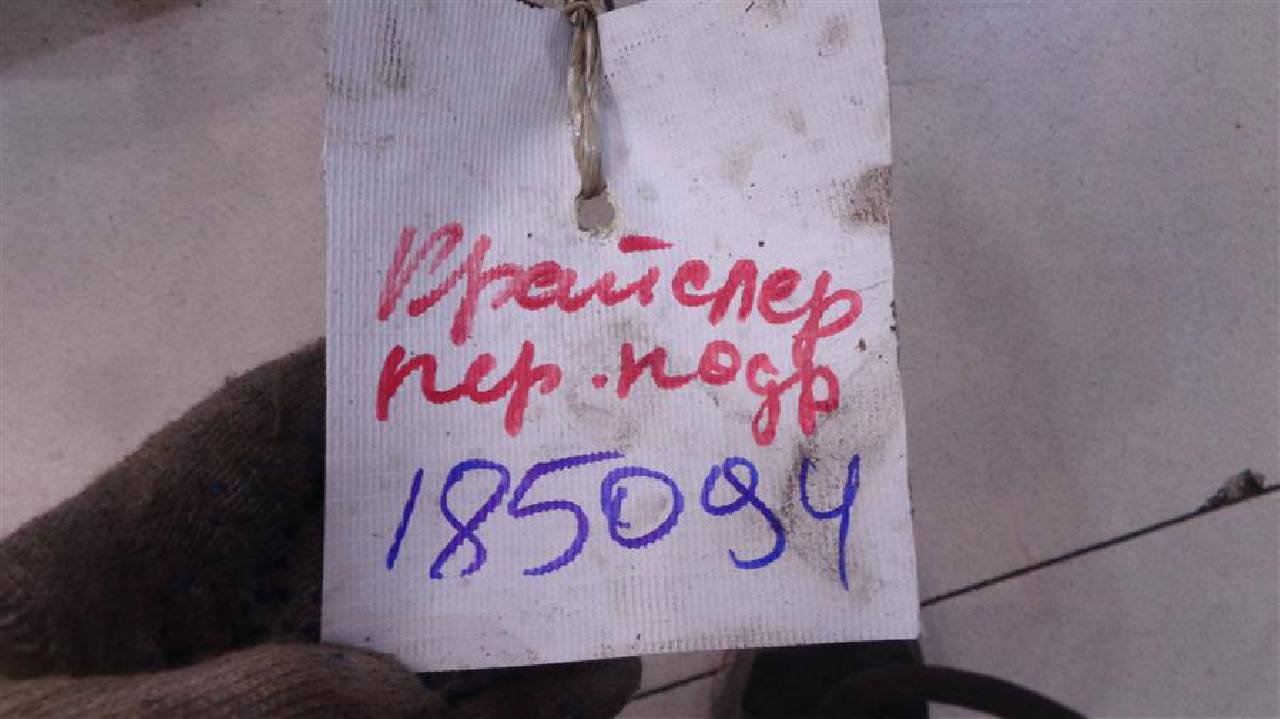 Крайслер
пер.подр
185094